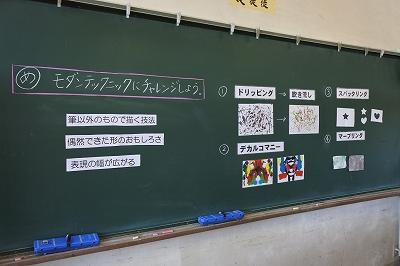 め モダンテクニックにチャレンジしよう。
筆以外のもので描く技法
偶然できた形のおもしろさ
表現の幅が広がる
① ドリッピング → 吹き流し
② デカルコマニー
③ スパッタリング
④ マーブリング